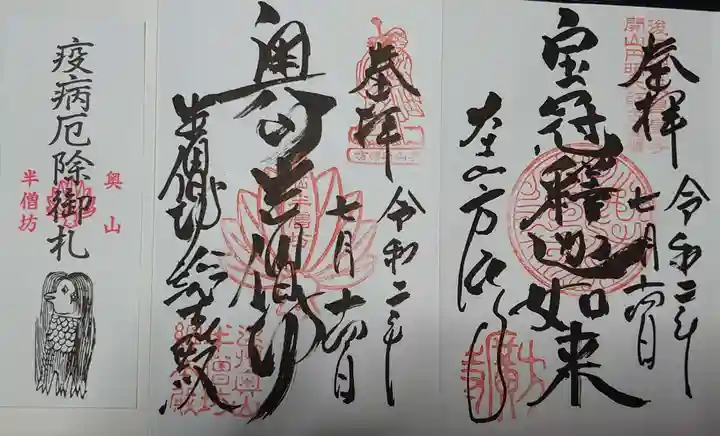 奉拝
令和二年
七月十四日
宝冠釋迦如来
大本山方広寺
奉拝
令和二年
七月十四日
奥山半僧坊
半僧坊総本殿
奥山
疫病厄除御札
半僧坊